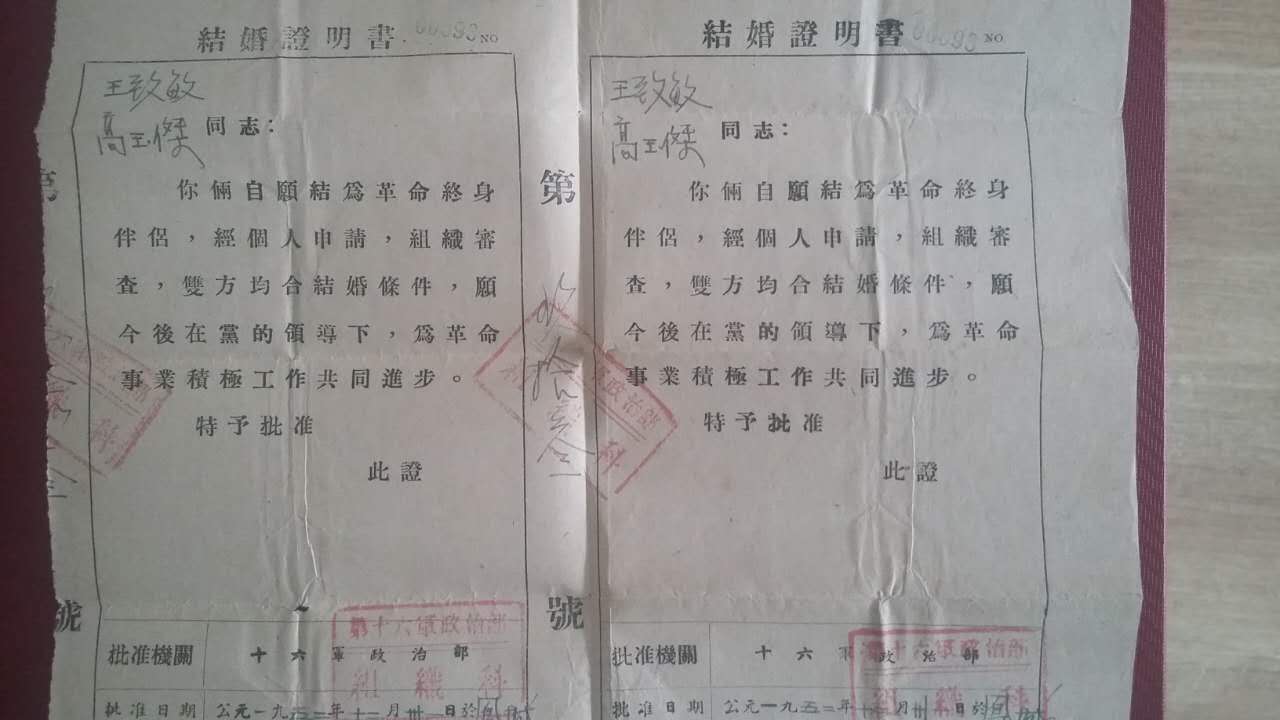 結婚證明書
00093 NO
王致敏
高玉傑 同志：
你倆自願結為革命終身
伴侶，經個人申請，組織審
查，雙方均合結婚條件，願
今後在黨的領導下，為革命
事業積極工作共同進步。
特予批准
此證
批准機關 十六軍政治部
第十六軍政治部
組織科
批准日期 公元一九五二年十二月卅一日於
第
號
結婚證明書
00093 NO
王致敏
高玉傑 同志：
你倆自願結為革命終身
伴侶，經個人申請，組織審
查，雙方均合結婚條件，願
今後在黨的領導下，為革命
事業積極工作共同進步。
特予批准
此證
批准機關 十六軍政治部
第十六軍政治部
組織科
批准日期 公元一九五二年十二月卅一日於